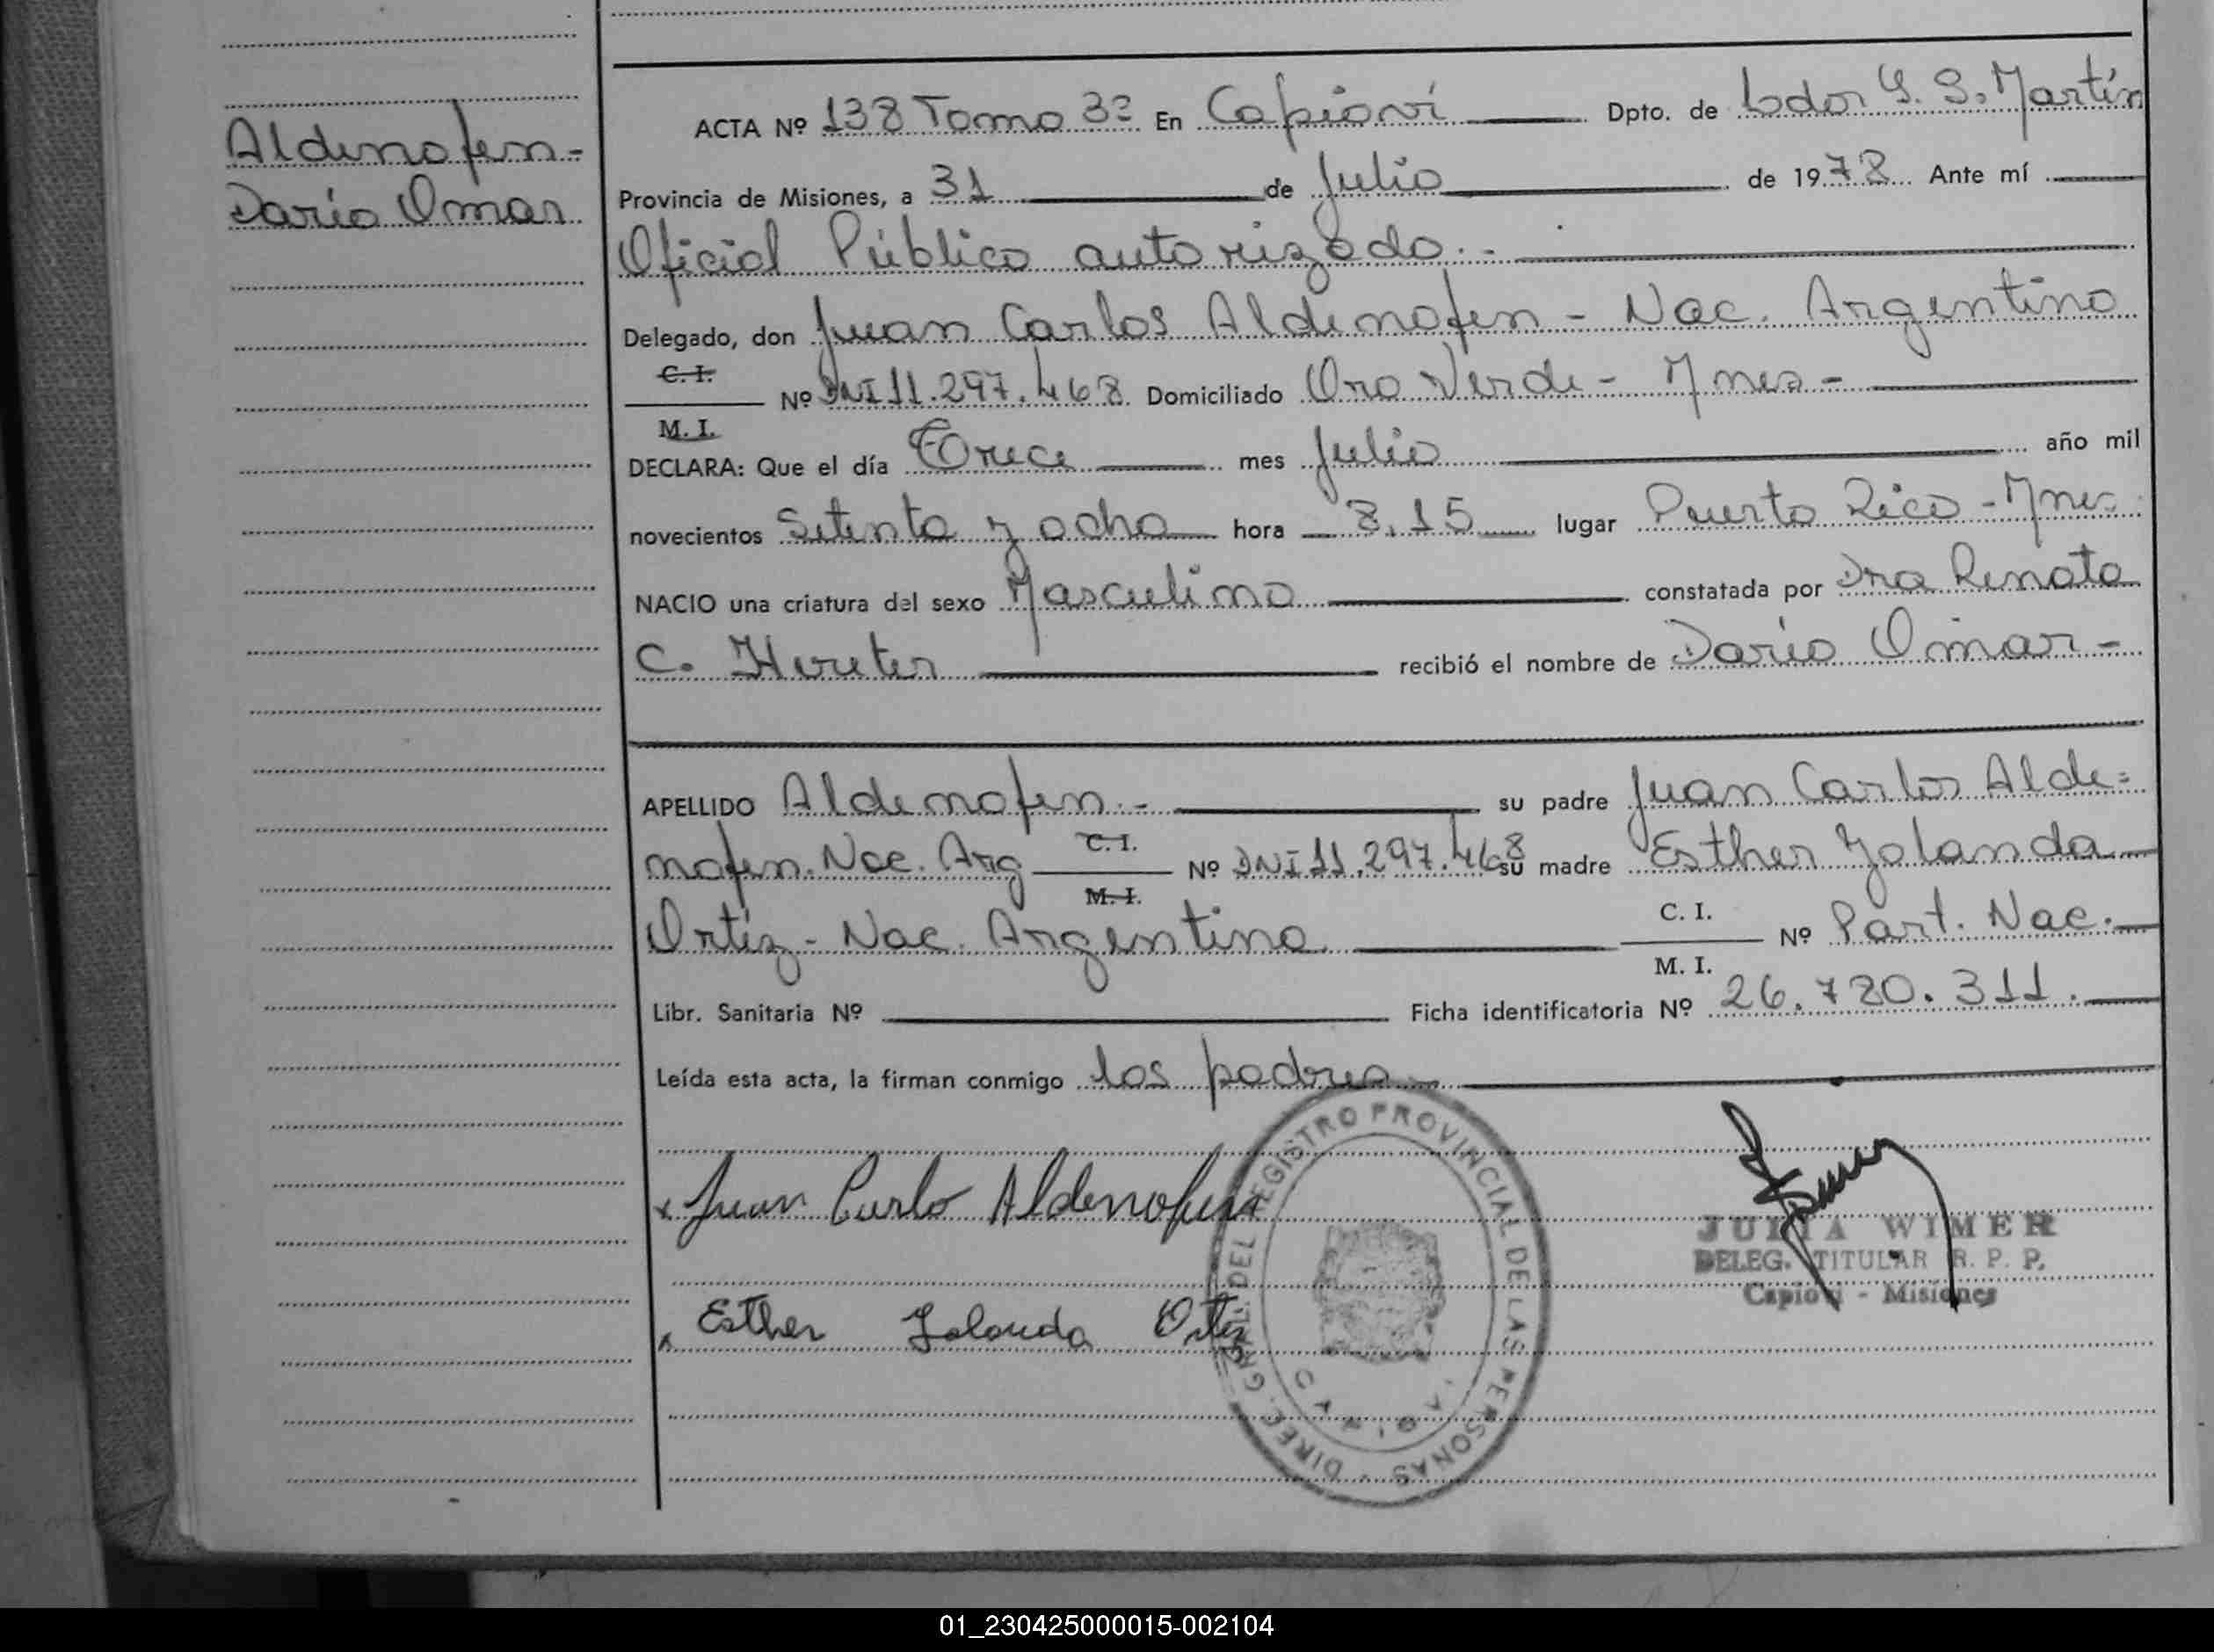 Aldenofen-
Darío Omar
ACTA Nº 138 Tomo 3º En Capioví Dpto. de Ldor G. S. Martín
Provincia de Misiones, a 31 de Julio de 1978. Ante mí
Oficial Público autorizado.-
Delegado, don Juan Carlos Aldenofen - Nac. Argentino
C. I.
M. I.
Nº DNI 11.297.468 Domiciliado Oro Verde - Mnes -
DECLARA: Que el día Trece mes Julio año mil
novecientos Setenta y ocho hora 8.15 lugar Puerto Rico - Mnes
NACIO una criatura del sexo Masculino constatada por Dra Renata
C. recibió el nombre de Darío Omar -
APELLIDO Aldenofen.- su padre Juan Carlos Alde=
nofen. Nac. Arg C. I. M. I. Nº DNI 11.297.468 su madre Esther Yolanda
Ortiz - Nac. Argentina C. I. M. I. Nº Part. Nac.
Libr. Sanitaria Nº Ficha identificatoria Nº 26.780.311.
Leída esta acta, la firman conmigo los padres
x Juan Carlo Aldenofen
x Esther Yolanda Ortiz
DIREC. GRAL. DEL REGISTRO PROVINCIAL DE LAS PERSONAS
CAPIOVI
JULIA WIMER
DELEG. TITULAR R. P. P.
Capioví - Misiones
01_230425000015-002104